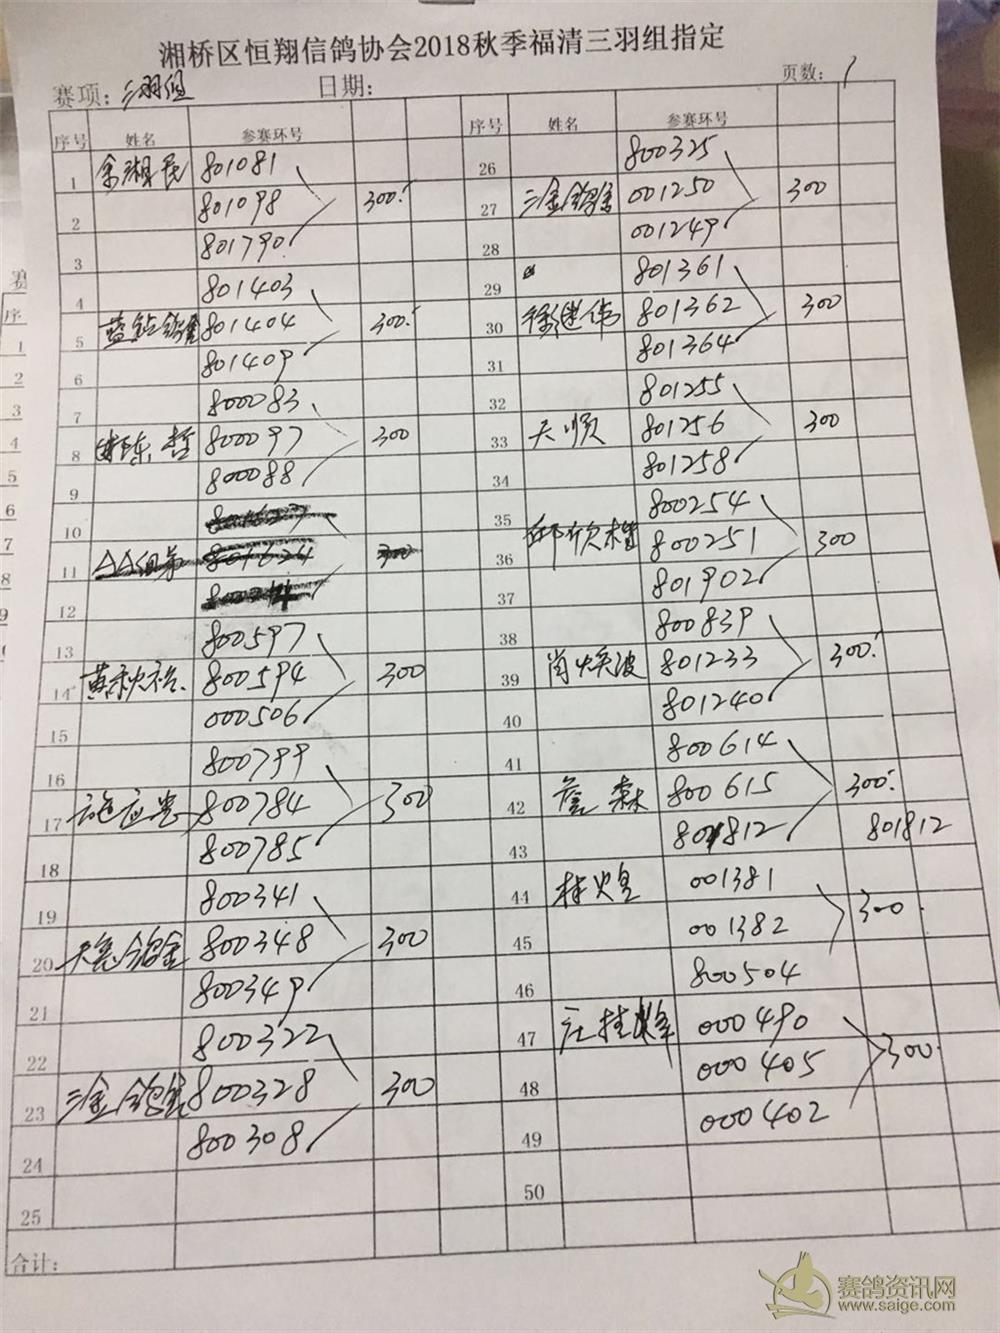 湘桥区恒翔信鸽协会2018秋季福清三羽组指定
赛项: 三羽组 日期: 页数: 1
序号 姓名 参赛环号
1 余湘民 801081
2 801098 300.
3 801790
4 801403
5 蓝钻鸽舍 801404 300.
6 801409
7 800083
8 陈哲 800097 300
9 800088
10
11 801624 300
12
13 800597
14 黄秋裕 800594 300
15 000506
16 800799
17 800784 300
18 800785
19 800341
20 天亮鸽舍 800348 300
21 800349
22 800322
23 三金鸽舍 800328 300
24 800308
25
合计:
序号 姓名 参赛环号
26 800325
27 三金鸽舍 001250 300
28 001249
29 801361
30 徐继伟 801362 300
31 801364
32 801255
33 天顺 801256 300
34 801258
35 800254
36 邱欣 800251 300
37 801902
38 800839
39 肖焕波 801233 300.
40 801240
41 800614
42 詹森 800615 300.
43 801812 801812
44 林火皇 001381
45 001382 300.
46 800504
47 庄桂 000490
48 000405 300.
49 000402
50
赛鸽资讯网
www.saige.com
赛
序
1
2
3
4
5
6
7
8
9